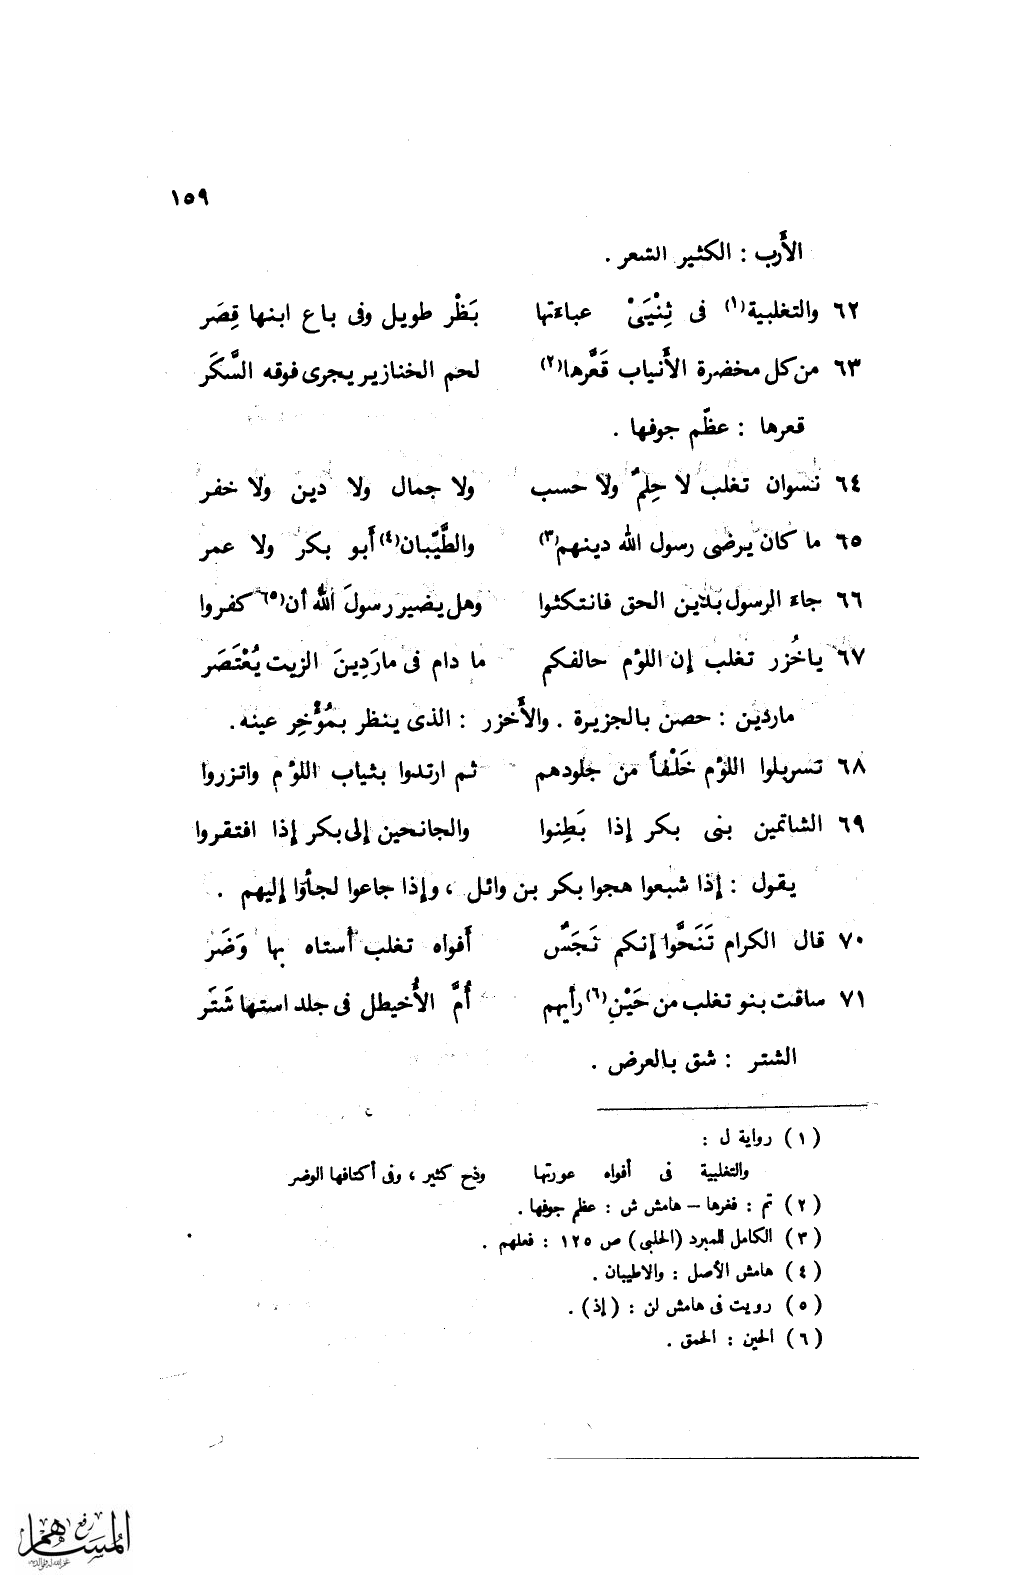 ١٥٩
الأَرب : الكثير الشعر .
٦٢ والتغلبية(١) فى ثِنْيَىْ عباءتها بَظْر طويل وفى باع ابنها قِصَر
٦٣ من كل مخضرة الأَنياب قَعَّرها(٢) لحم الخنازير يجرى فوقه السَّكَر
قعرها : عظّم جوفها .
٦٤ نسوان تغلب لا حِلِمٌ ولا حسب ولا جمال ولا دين ولا خفر
٦٥ ما كان يرضى رسول الله دينهم(٣) والطَّيّبان(٤) أَبو بكر ولا عمر
٦٦ جاء الرسول بدين الحق فانتكثوا وهل يضير رسولَ اللهُ أن(٥) كفروا
٦٧ ياخُزر تغلب إن اللؤم حالفكم ما دام فى مارَدِينَ الزيت يُعْتَصَر
ماردين : حصن بالجزيرة . والأَخزر : الذى ينظر بمُؤْخِر عينه .
٦٨ تسربلوا اللؤم خَلْفاً من جلودهم ثم ارتدوا بثياب اللؤم واتزروا
٦٩ الشاتمين بنى بكر إذا بَطِنوا والجانحين إلى بكر إذا افتقروا
يقول : إذا شبعوا هجوا بكر بن وائل ، وإذا جاعوا لجأوا إليهم .
٧٠ قال الكرام تَنَحَّوا إنكم نَجَسٌ أَفواه تغلب أستاه بها وَضَر
٧١ ساقت بنو تغلب من حَيْنِ(٦) رأيهم أُمَّ الأُخيطل فى جلد استها شَتَر
الشتر : شق بالعرض .
(١) رواية ل :
والتغلبية فى أفواه عورتها وذح كثير ، وفى أكتافها الوضر
(٢) تم : فغرها – هامش ش : عظم جوفها .
(٣) الكامل للمبرد (الحلبى) ص ١٢٥ : فعلهم .
(٤) هامش الأصل : والاطيبان .
(٥) رويت فى هامش لن : (إذ) .
(٦) الحين : الحمق .